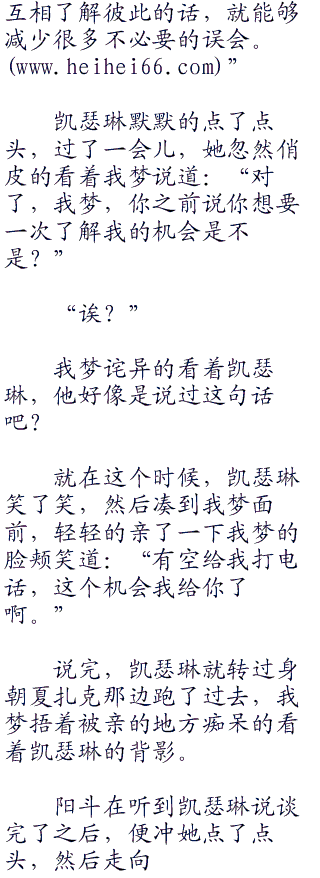 互相了解彼此的话，就能够
减少很多不必要的误会。
(www.heihei66.com)”
凯瑟琳默默的点了点
头，过了一会儿，她忽然俏
皮的看着我梦说道：“对
了，我梦，你之前说你想要
一次了解我的机会是不
是？”
“诶？”
我梦诧异的看着凯瑟
琳，他好像是说过这句话
吧？
就在这个时候，凯瑟琳
笑了笑，然后凑到我梦面
前，轻轻的亲了一下我梦的
脸颊笑道：“有空给我打电
话，这个机会我给你了
啊。”
说完，凯瑟琳就转过身
朝夏扎克那边跑了过去，我
梦捂着被亲的地方痴呆的看
着凯瑟琳的背影。
阳斗在听到凯瑟琳说谈
完了之后，便冲她点了点
头，然后走向